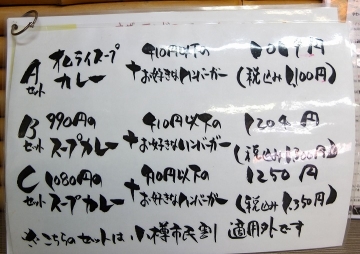 Aセット オムライスープカレー + 410円以下のお好きなハンバーガー 1019円(税込み1,100円)
Bセット 990円のスープカレー + 410円以下のお好きなハンバーガー 1204円(税込み1,300円)
Cセット 1080円のスープカレー + 410円以下のお好きなハンバーガー 1250円(税込み1,350円)
※こちらのセットは小樽市民割適用外です